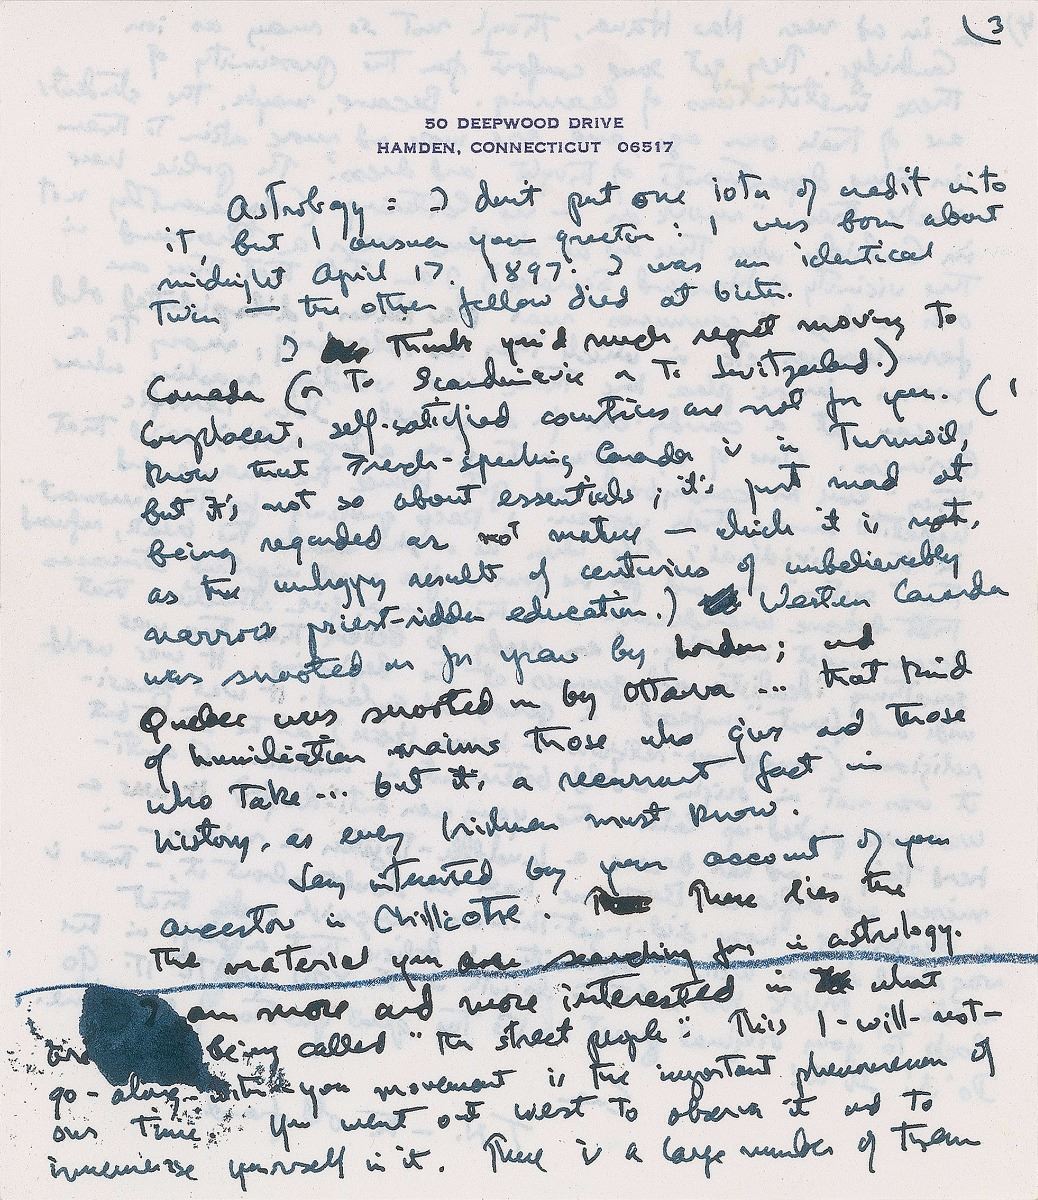 (3
50 DEEPWOOD DRIVE
HAMDEN, CONNECTICUT 06517
Astrology: I don't put one iota of credit into
it, but I answer your question: I was born about
midnight April 17, 1897. I was an identical
twin — the other fellow died at birth.
I think you'd much regret moving to
Canada (or to Scandinavia or to Switzerland.)
Complacent, self-satisfied countries are not for you. (I
know that French-speaking Canada is in turmoil,
but it's not so about essentials; it's just mad at
being regarded as not mature — which it is not,
as the unhappy result of centuries of unbelievably
narrow priest-ridden education.) Western Canada
was snooted on for years by London; and
Quebec was snooted on by Ottawa ... that kind
of humiliation maims those who give and those
who take ... but it's a recurrant fact in
history, as every Irishman must know.
Very interested by your account of your
ancestor in Chillicothe. There lies the
the material you are searching for in astrology.
I am more and more interested in what
are being called "the street people". This I-will-not-
go-along-with-you movement is the important phenomenon of
our time. You went out west to observe it and to
immerse yourself in it. There is a large number of them